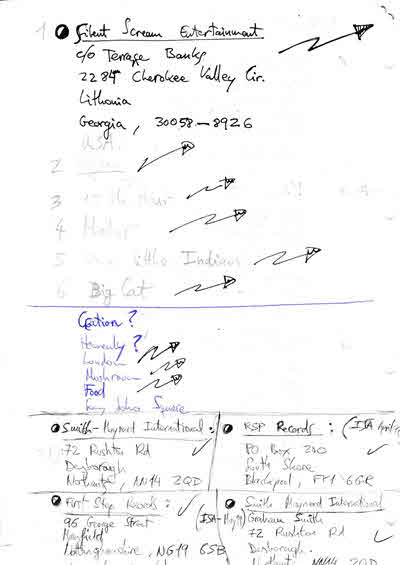 1 Silent Scream Entertainment
c/o Terrage Banks
2284 Cherokee Valley Cir.
Lithonia
Georgia, 30058-8926
USA.
2
3
4
5 Little Indians
6 Big Cat
Creation?
Heavenly?
London
Mushroom
Food
Smith-Maynard International:
72 Rushton Rd
Desborough
Northants, NN14 2QD
RSP Records: (ISA April
PO Box 230
South Shore
Blackpool, FY1 6GR
First Step Records: (ISA-May
96 George Street
Mansfield
Nottinghamshire, NG19 6SB
Smith Maynard International
Graham Smith
72 Rushton Rd
Desborough.
Northants NN14 2QD